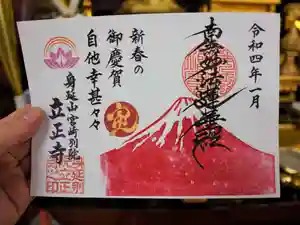 令和四年一月
南無妙法蓮華経
新春の
御慶賀
自他幸甚々々
身延山宮崎別院
立正寺